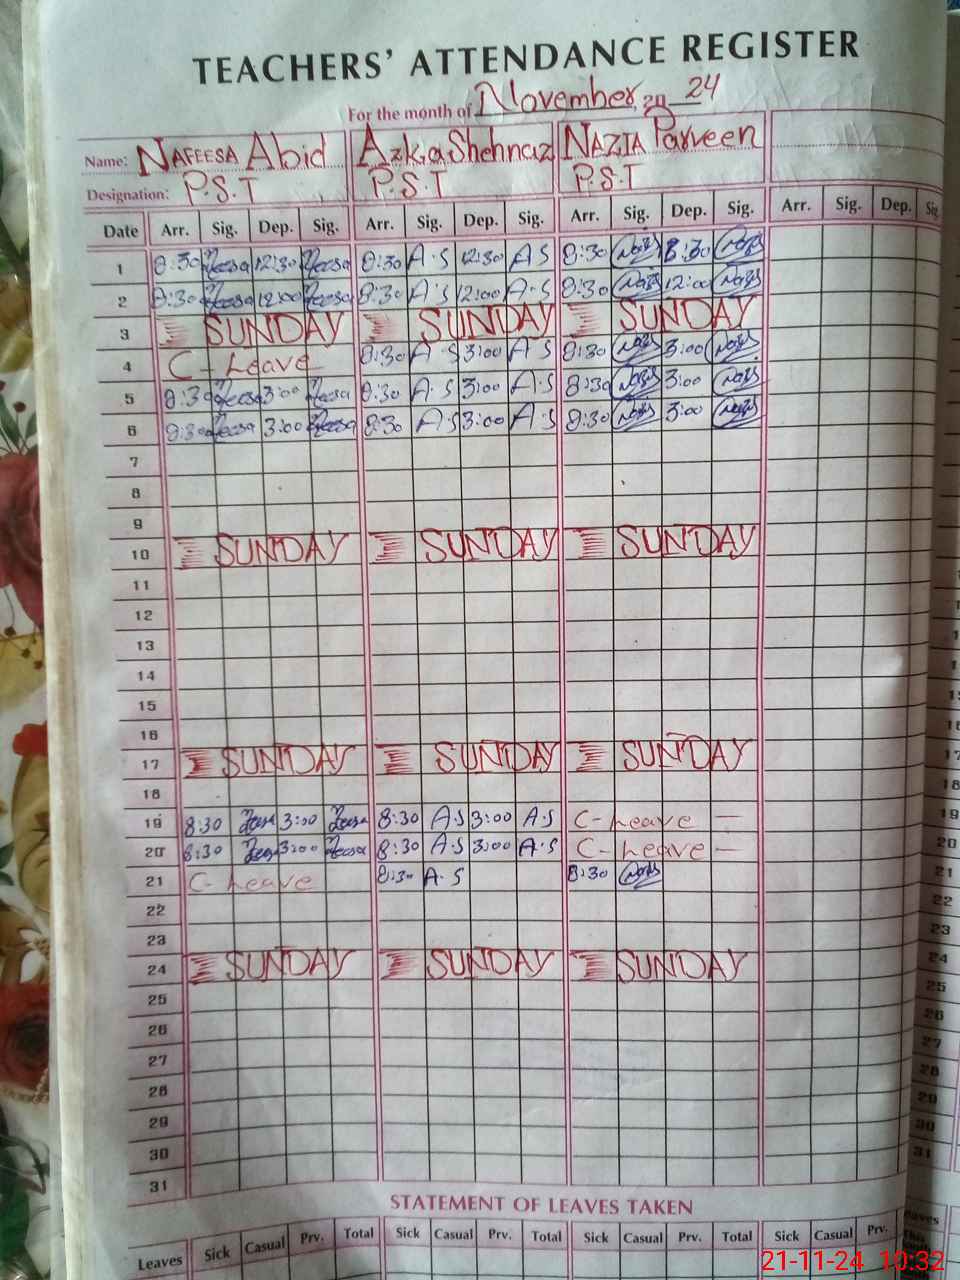 TEACHERS' ATTENDANCE REGISTER
For the month of November, 20 24
Name: NAFEESA Abid Azkia Shehnaz NAZIA Parveen
Designation: P.S.T P.S.T P.S.T
Date Arr. Sig. Dep. Sig. Arr. Sig. Dep. Sig. Arr. Sig. Dep. Sig. Arr. Sig. Dep. Sig
1 8:30 12:30 8:30 A.S 12:30 A S 8:30
2 8:30 12:00 8:30 A.S 12:00 A.S 8:30 12:00
3 SUNDAY SUNDAY SUNDAY
4 C-Leave 8:30 A S 3:00 A S 8:30 3:00
5 8:30 3:00 8:30 A.S 3:00 A.S 8:30 3:00
6 8:30 3:00 8:30 A.S 3:00 A.S 8:30 3:00
7
8
9
10 SUNDAY SUNDAY SUNDAY
11
12
13
14
15
16
17 SUNDAY SUNDAY SUNDAY
18
19 8:30 3:00 8:30 A.S 3:00 A.S C-Leave —
20 8:30 3:00 8:30 A.S 3:00 A.S C-Leave —
21 C-Leave 8:30 A.S 8:30
22
23
24 SUNDAY SUNDAY SUNDAY
25
26
27
28
29
30
31
STATEMENT OF LEAVES TAKEN
Leaves Sick Casual Prv. Total Sick Casual Prv. Total Sick Casual Prv. Total Sick Casual Prv.
21-11-24 10:32